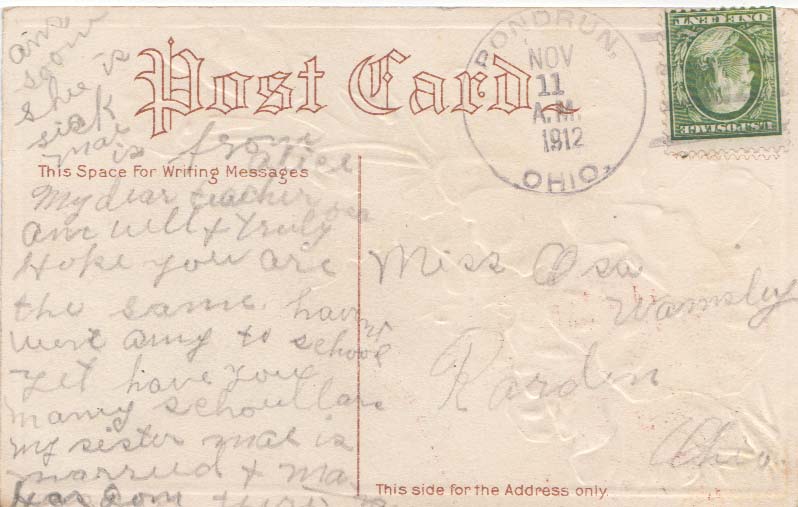 and
soon
she is
sick
mai is from
alice
Post Card
PONDRUN,
NOV
11
A.M.
1912
OHIO.
ONE CENT
U.S. POSTAGE
This Space For Writing Messages
My dear teacher osa
am well & truly
Hope you are
the same havnt
went any to school
yet have you
many schoullars
my sister mai is
married & ma
Miss Osa
Wamsley
Rarden
Ohio.
This side for the Address only.